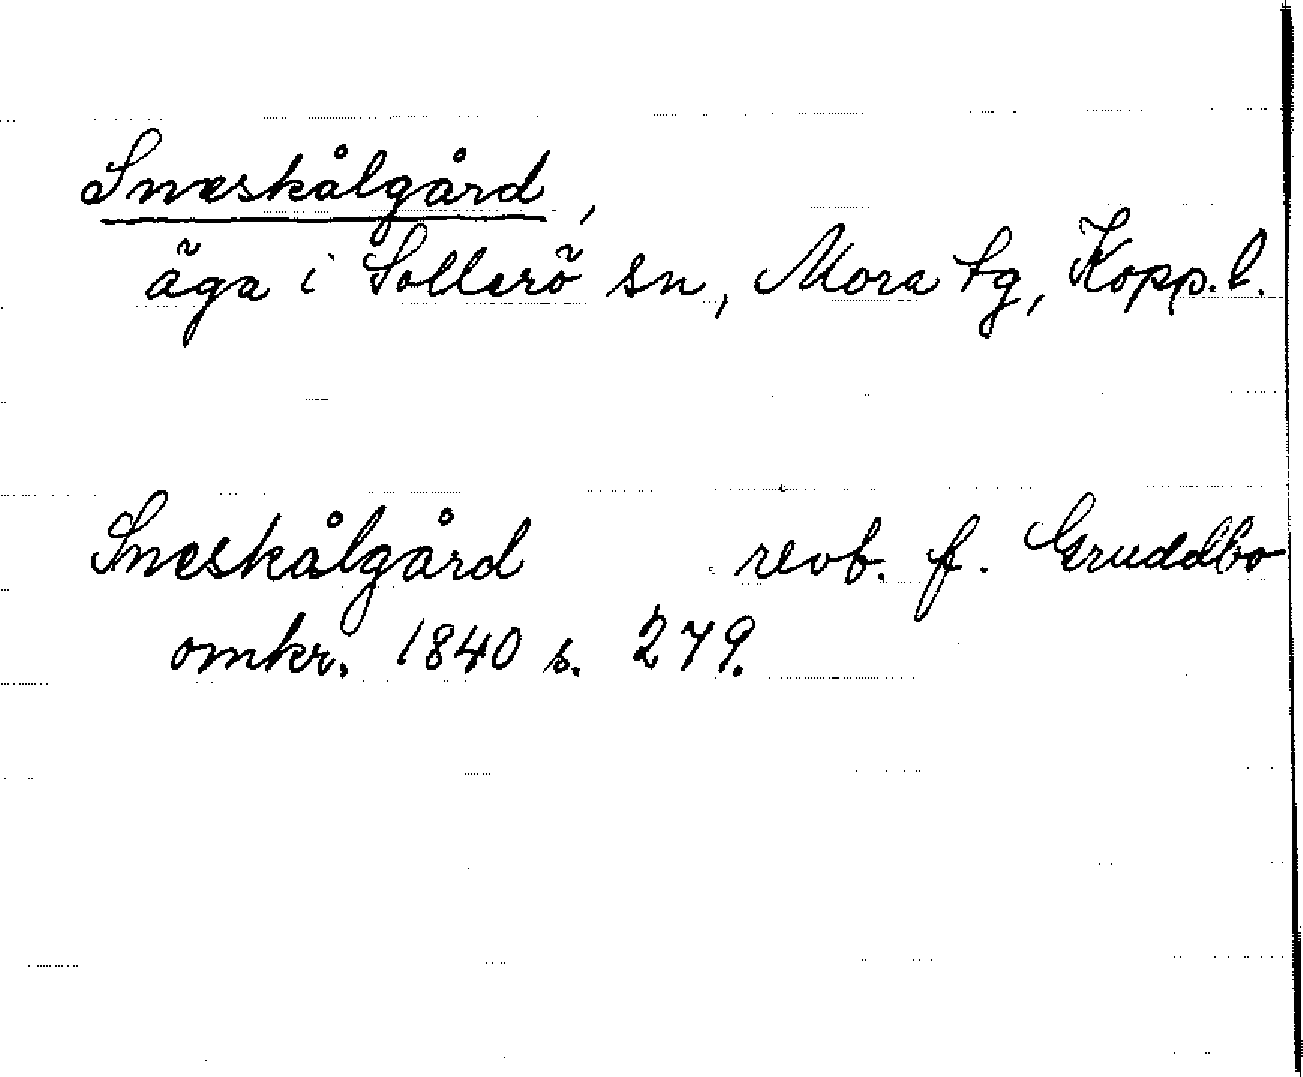 Sneskålgård,
äga i Sollerö sn, Mora tg, Kopp. l.
Sneskålgård revb. f. Gruddbo
omkr. 1840 s. 279.